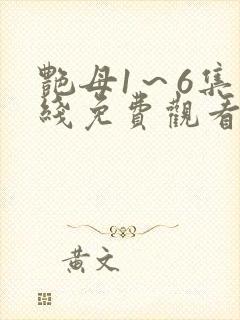 艷母1～6集
綫免費觀看
黃文